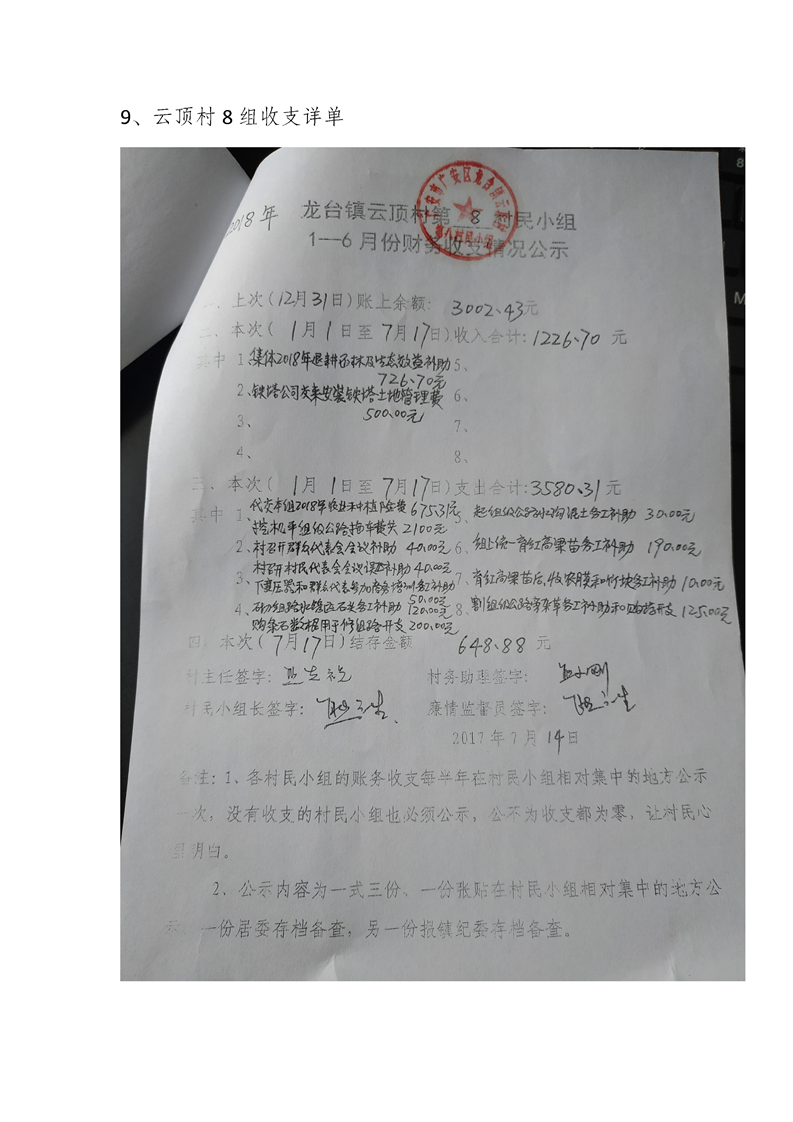 9、云顶村8组收支详单
2018年 龙台镇云顶村第 8 村民小组
1—6月份财务收支情况公示
一、上次(12月31日)账上余额: 3002.43元
二、本次( 1月1日至7月17日)收入合计:1226.70 元
其中 1、集体2018年退耕还林及生态效益补助 5、
726.70元
2、铁塔公司发来安装铁塔土地管理费 6、
500.00元
3、 7、
4、 8、
三、本次( 1月1日至7月17日)支出合计:3580.31元
代交本组2018年农业种植险费 675.31元
其中 1、挖机平组级公路拖车费共 2100元 5、起组级公路水沟混土务工补助 30.00元
2、村召开群众代表会会议补助 40.00元 6、组上统一育红高粱苗务工补助 190.00元
村召开村民代表会会议误工补助 40.00元
3、下变压器和群众代表参加商务培训务工补助 50.00元 7、育红高粱苗后,收农膜和竹块务工补助 10.00元
4、石砌组路水罐函石头务工补助 120.00元 8、割组级公路旁杂草务工补助和购药开支 125.00元
购条石数根用于修组路开支 200.00元
四、本次(7月17日)结存金额 648.88 元
村主任签字: 村务助理签字:
村民小组长签字: 廉情监督员签字:
2017年7月14日
备注:1、各村民小组的账务收支每半年在村民小组相对集中的地方公示
一次,没有收支的村民小组也必须公示,公不为收支都为零,让村民心
里明白。
2、公示内容为一式三份、一份张贴在村民小组相对集中的地方公
示,一份居委存档备查,另一份报镇纪委存档备查。